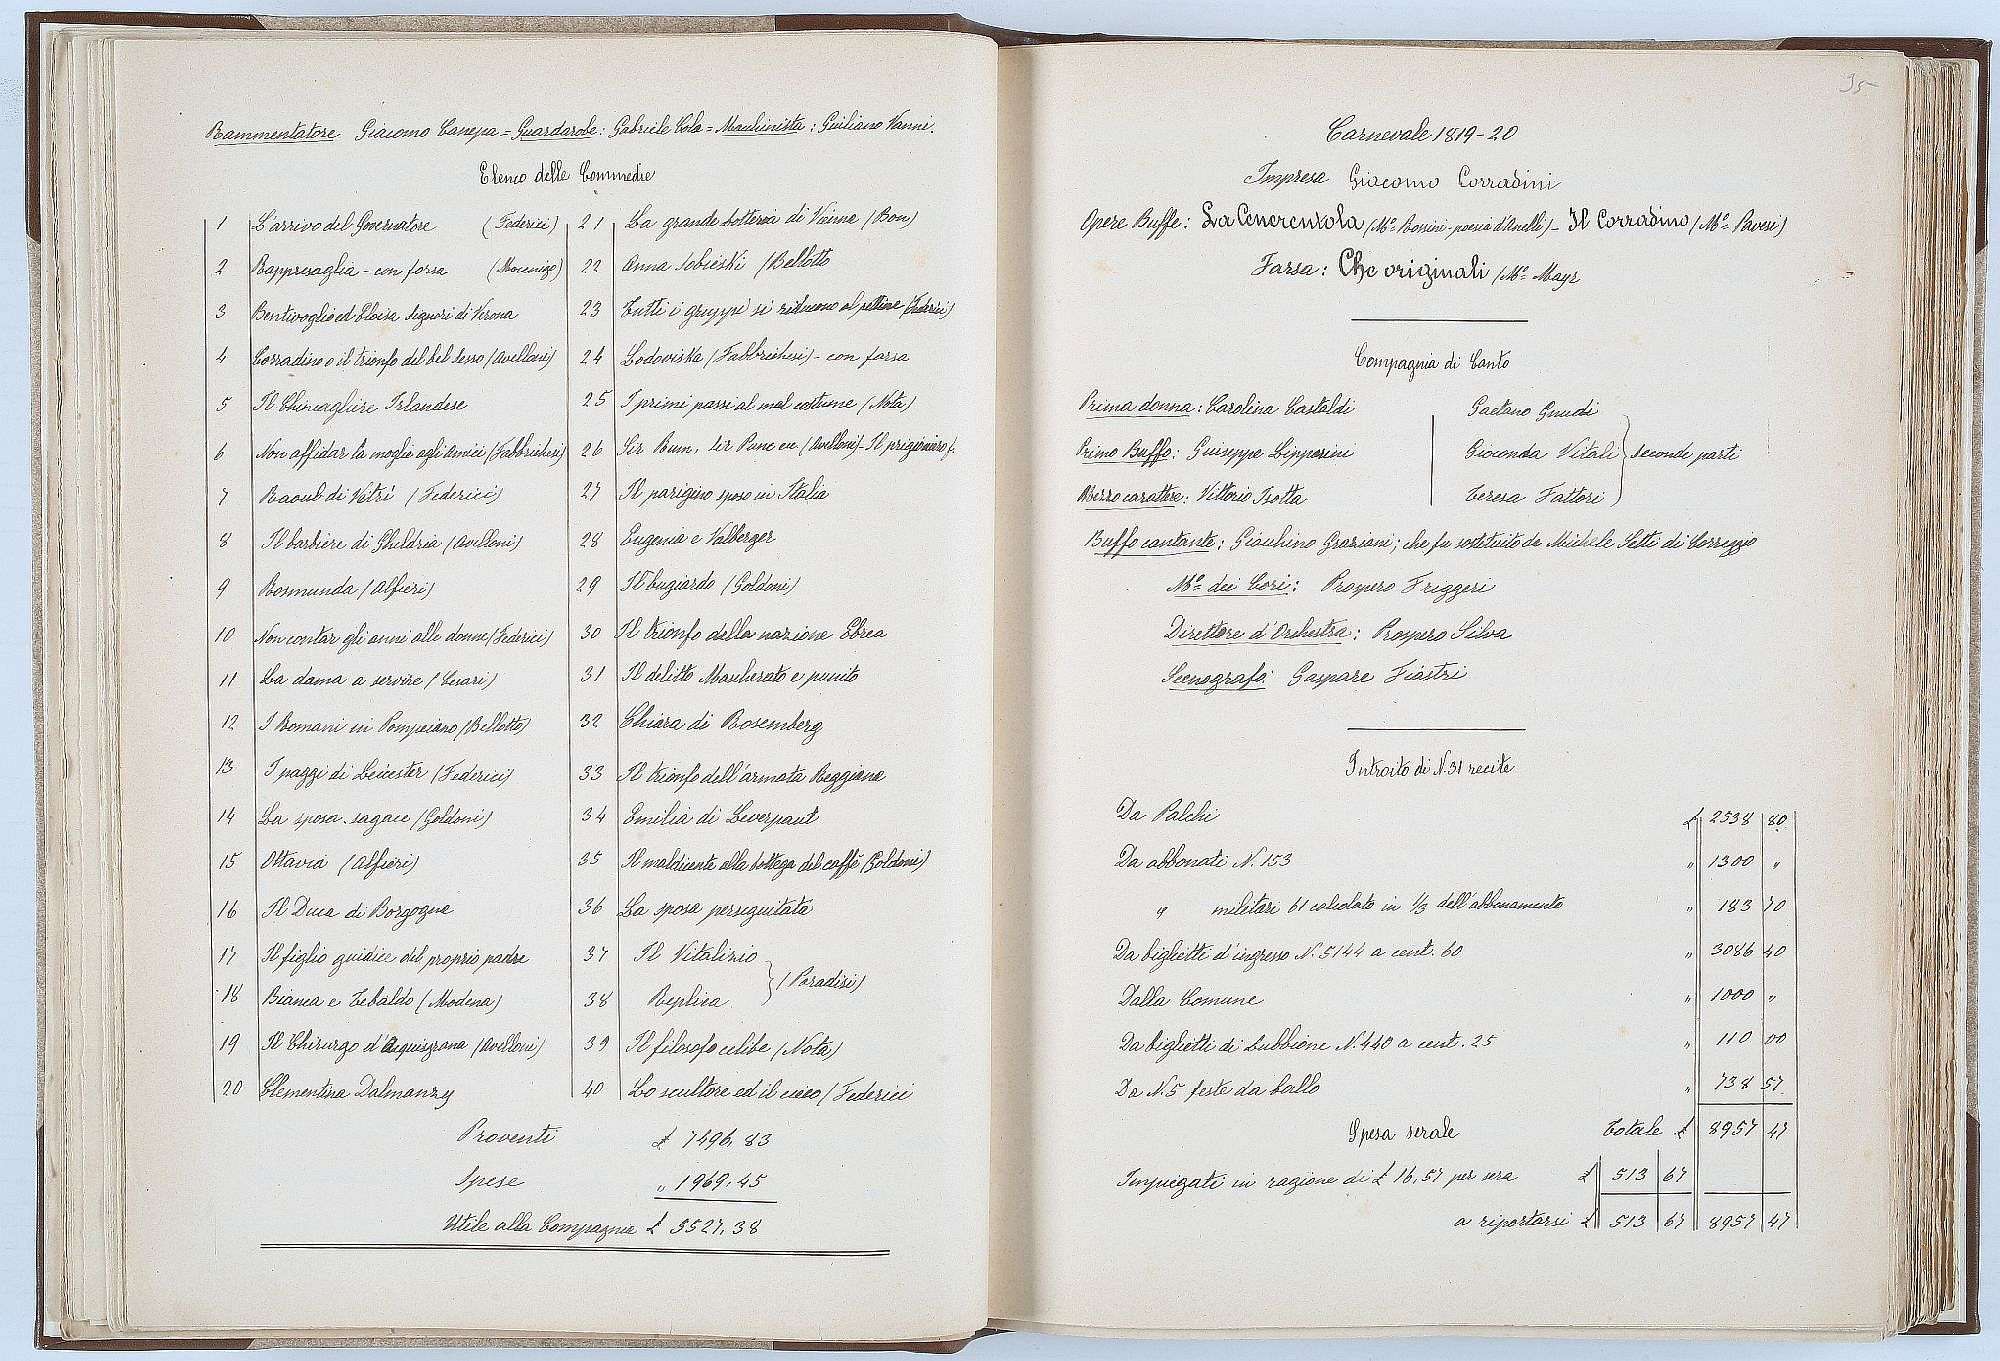 Rammentatore Giacomo Canepa = Guardarobe: Gabriele Cola = Machinista: Giuliano Vanni.
Elenco delle Commedie
1 L'arrivo del Governatore (Federici)
2 Rappresaglia - con farsa
3 Bentivoglio ed Eloisa Signori di Verona
4 Corradino o il trionfo del bel sesso (Avelloni)
5 Il Chincagliere Irlandese
6 Non affidar la moglie agli amici (Fabbrichesi)
7 Raoul di (Federici)
8 Il barbiere di Gheldria (Avelloni)
9 Rosmunda (Alfieri)
10 Non contar gli anni alle donne (Federici)
11 La dama a servire (Cesari)
12 I Romani in Pompeiano (Bellotto)
13 I paggi di Leicester (Federici)
14 La sposa sagace (Goldoni)
15 Ottavia (Alfieri)
16 Il Duca di Borgogna
17 Il figlio giudice del proprio padre
18 Bianca e Tebaldo (Modena)
19 Il Chirurgo d'Aquisgrana (Avelloni)
20 Clementina Dalmanzy
21 La grande botteria di Vienne (Bon)
22 Anna Sobieski (Bellotto
23 Tutti i gruppi si riducono al pettine (Federici)
24 Lodoviska (Fabbrichesi) - con farsa
25 I primi passi al mal costume (Nota)
26 Sir Bum, Sir Punc ec (Avelloni) - Il prigioniero f.
27 Il parigino sposo in Italia
28 Eugenia e Valberger
29 Il bugiardo (Goldoni)
30 Il trionfo della nazione Ebrea
31 Il delitto Mascherato e punito
32 Chiara di Rosemberg
33 Il trionfo dell'armata Reggiana
34 Emilia di Leverpaut
35 Il maldicente alla bottega del caffè (Goldoni)
36 La sposa perseguitata
37 Il Vitalizio
38 Replica
(Paradisi)
39 Il filosofo celibe (Nota)
40 Lo scultore ed il cieco (Federici
Proventi £ 7496.83
Spese " 1969.45
Utile alla Compagnia £ 5527.38
95
Carnevale 1819-20
Impresa Giacomo Corradini
Opere Buffe: La Cenerentola (Mo. Rossini - poesia d'Anelli) - Il Corradino (Mo. Pavesi)
Farsa: Che originali (Mo. Mayr
Compagnia di Canto
Prima donna: Carolina Castaldi
Primo Buffo: Giuseppe Lipparini
Mezzo carattere: Vittorio Isotta
Gaetano Gnudi
Gioconda Vitali
Teresa Fattori
Seconde parti
Buffo cantante: Giachino Graziani; che fu sostituito da Michele Setti di Correggio
Mo. dei Cori: Prospero Friggeri
Direttore d'Orchestra: Prospero Silva
Scenografo: Gaspare Fiastri
Introito di N. 31 recite
Da Palchi £ 2538 80
Da abbonati N. 153 " 1300 "
" militari 61 calcolato in 1/3 dell'abbonamento " 183 70
Da biglietti d'ingresso N. 5144 a cent. 60 " 3086 40
Dalla Comune " 1000 "
Da biglietti di Lubbione N. 440 a cent. 25 " 110 00
Da N. 5 feste da ballo " 738 57
Spesa serale Totale £ 8957 47
Impiegati in ragione di £ 16,57 per sera £ 513 67
a riportarsi £ 513 67 8957 47